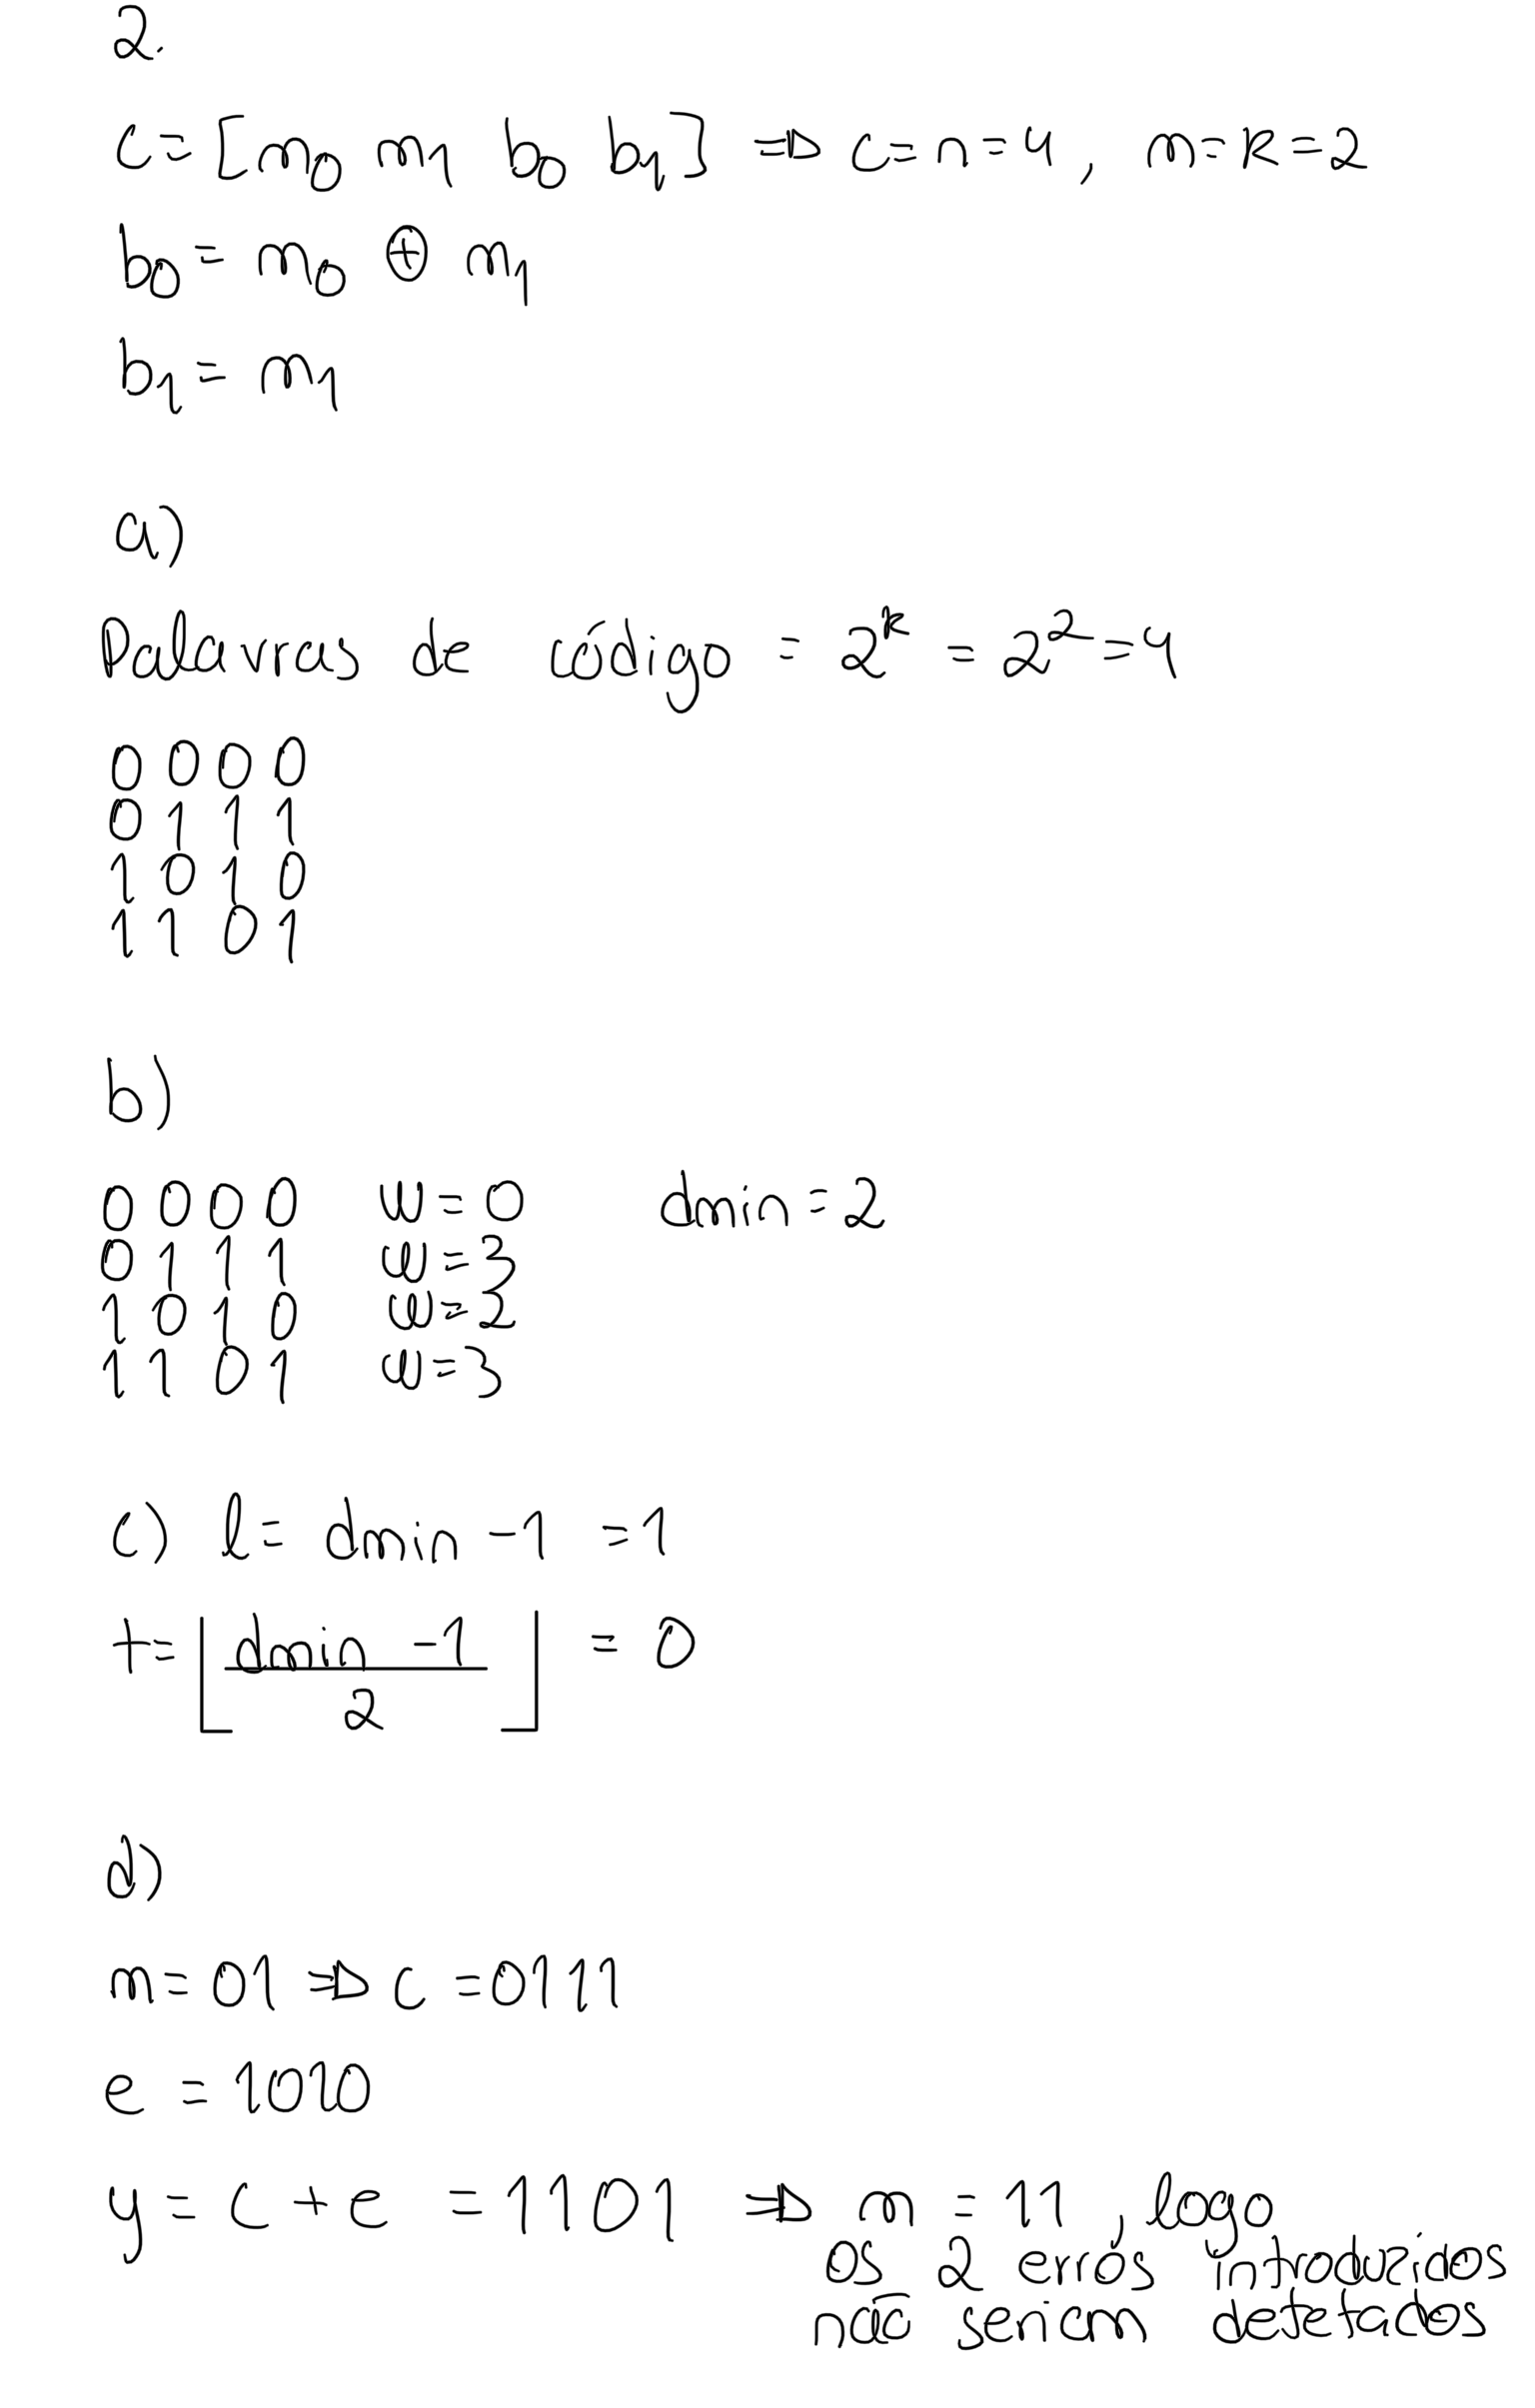 2.
c = [m0 m1 b0 b1] ⇒ c = n = 4, m = k = 2
b0 = m0 ⊕ m1
b1 = m1
a)
Palavras de código = 2^k = 2^2 = 4
0 0 0 0
0 1 1 1
1 0 1 0
1 1 0 1
b)
0 0 0 0 w=0 dmin=2
0 1 1 1 w=3
1 0 1 0 w=2
1 1 0 1 w=3
c) l = dmin - 1 = 1
t = ⌊(dmin - 1)/2⌋ = 0
d)
m = 01 ⇒ c = 0111
e = 1010
y = c + e = 1101 ⇒ m = 11, logo
os 2 erros introduzidos
não seriam detetados